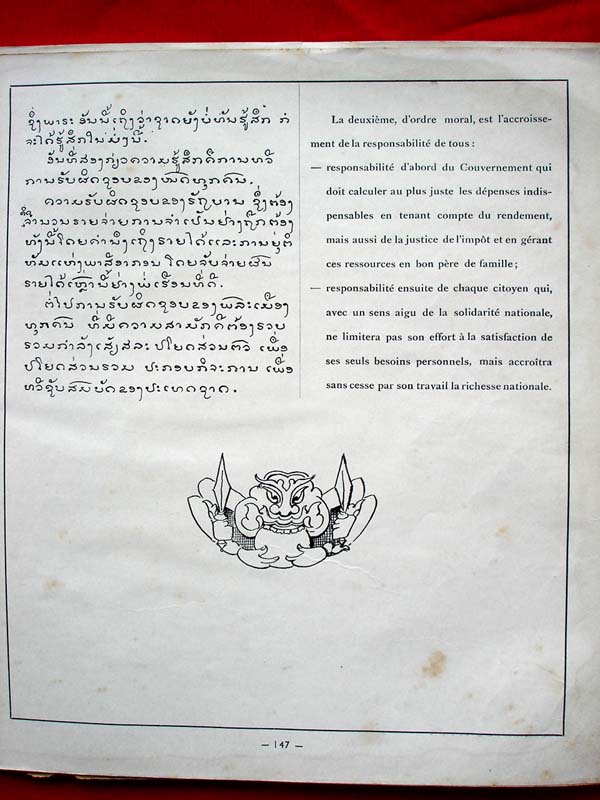 ຊຶ່ງພາຣະ ອັນນີ້ເຖິງວ່າຊາດຍັງບໍ່ທັນຮູ້ສຶກ ກໍ
ຈະໄດ້ຮູ້ສຶກໃນ
ອັນທີສອງກ່ຽວຄວາມຮູ້ສຶກຄືການທວີ
ການຮັບຜິດຊອບຂອງ ທຸກຄົນ.
ຄວາມຮັບຜິດຊອບຂອງຣັຖບານ ຊຶ່ງຕ້ອງ
ຈຳນວນຣາຍຈ່າຍການຈຳເປັນຢ່າງຖືກຕ້ອງ
ທັງນີ້ໂດຍຄຳນຶງເຖິງຣາຍໄດ້ແລະການຍຸຕິ
ທັມແຫ່ງພາສີອາກອນ ໂດຍຈັບຈ່າຍຜົນ
ຣາຍໄດ້ເຫຼົ່ານີ້ຢ່າງພໍ່ເຮືອນທີ່ດີ.
ຕໍ່ໄປການຮັບຜິດຊອບຂອງພົລະເມືອງ
ທຸກຄົນ ທີ່ມີຄວາມສາມັກຄີຕ້ອງຣວບ
ຣວມກຳລັງເສັຽສລະ ປໂຍດສ່ວນຕົວ ເພື່ອ
ປໂຍດສ່ວນຣວມ ປະກອບກິຈະການ ເພື່ອ
ທວີຊັບສົມບັດຂອງປະເທດຊາດ.
La deuxième, d'ordre moral, est l'accroisse-
ment de la responsabilité de tous :
— responsabilité d'abord du Gouvernement qui
doit calculer au plus juste les dépenses indis-
pensables en tenant compte du rendement,
mais aussi de la justice de l'impôt et en gérant
ces ressources en bon père de famille ;
— responsabilité ensuite de chaque citoyen qui,
avec un sens aigu de la solidarité nationale,
ne limitera pas son effort à la satisfaction de
ses seuls besoins personnels, mais accroîtra
sans cesse par son travail la richesse nationale.
— 147 —